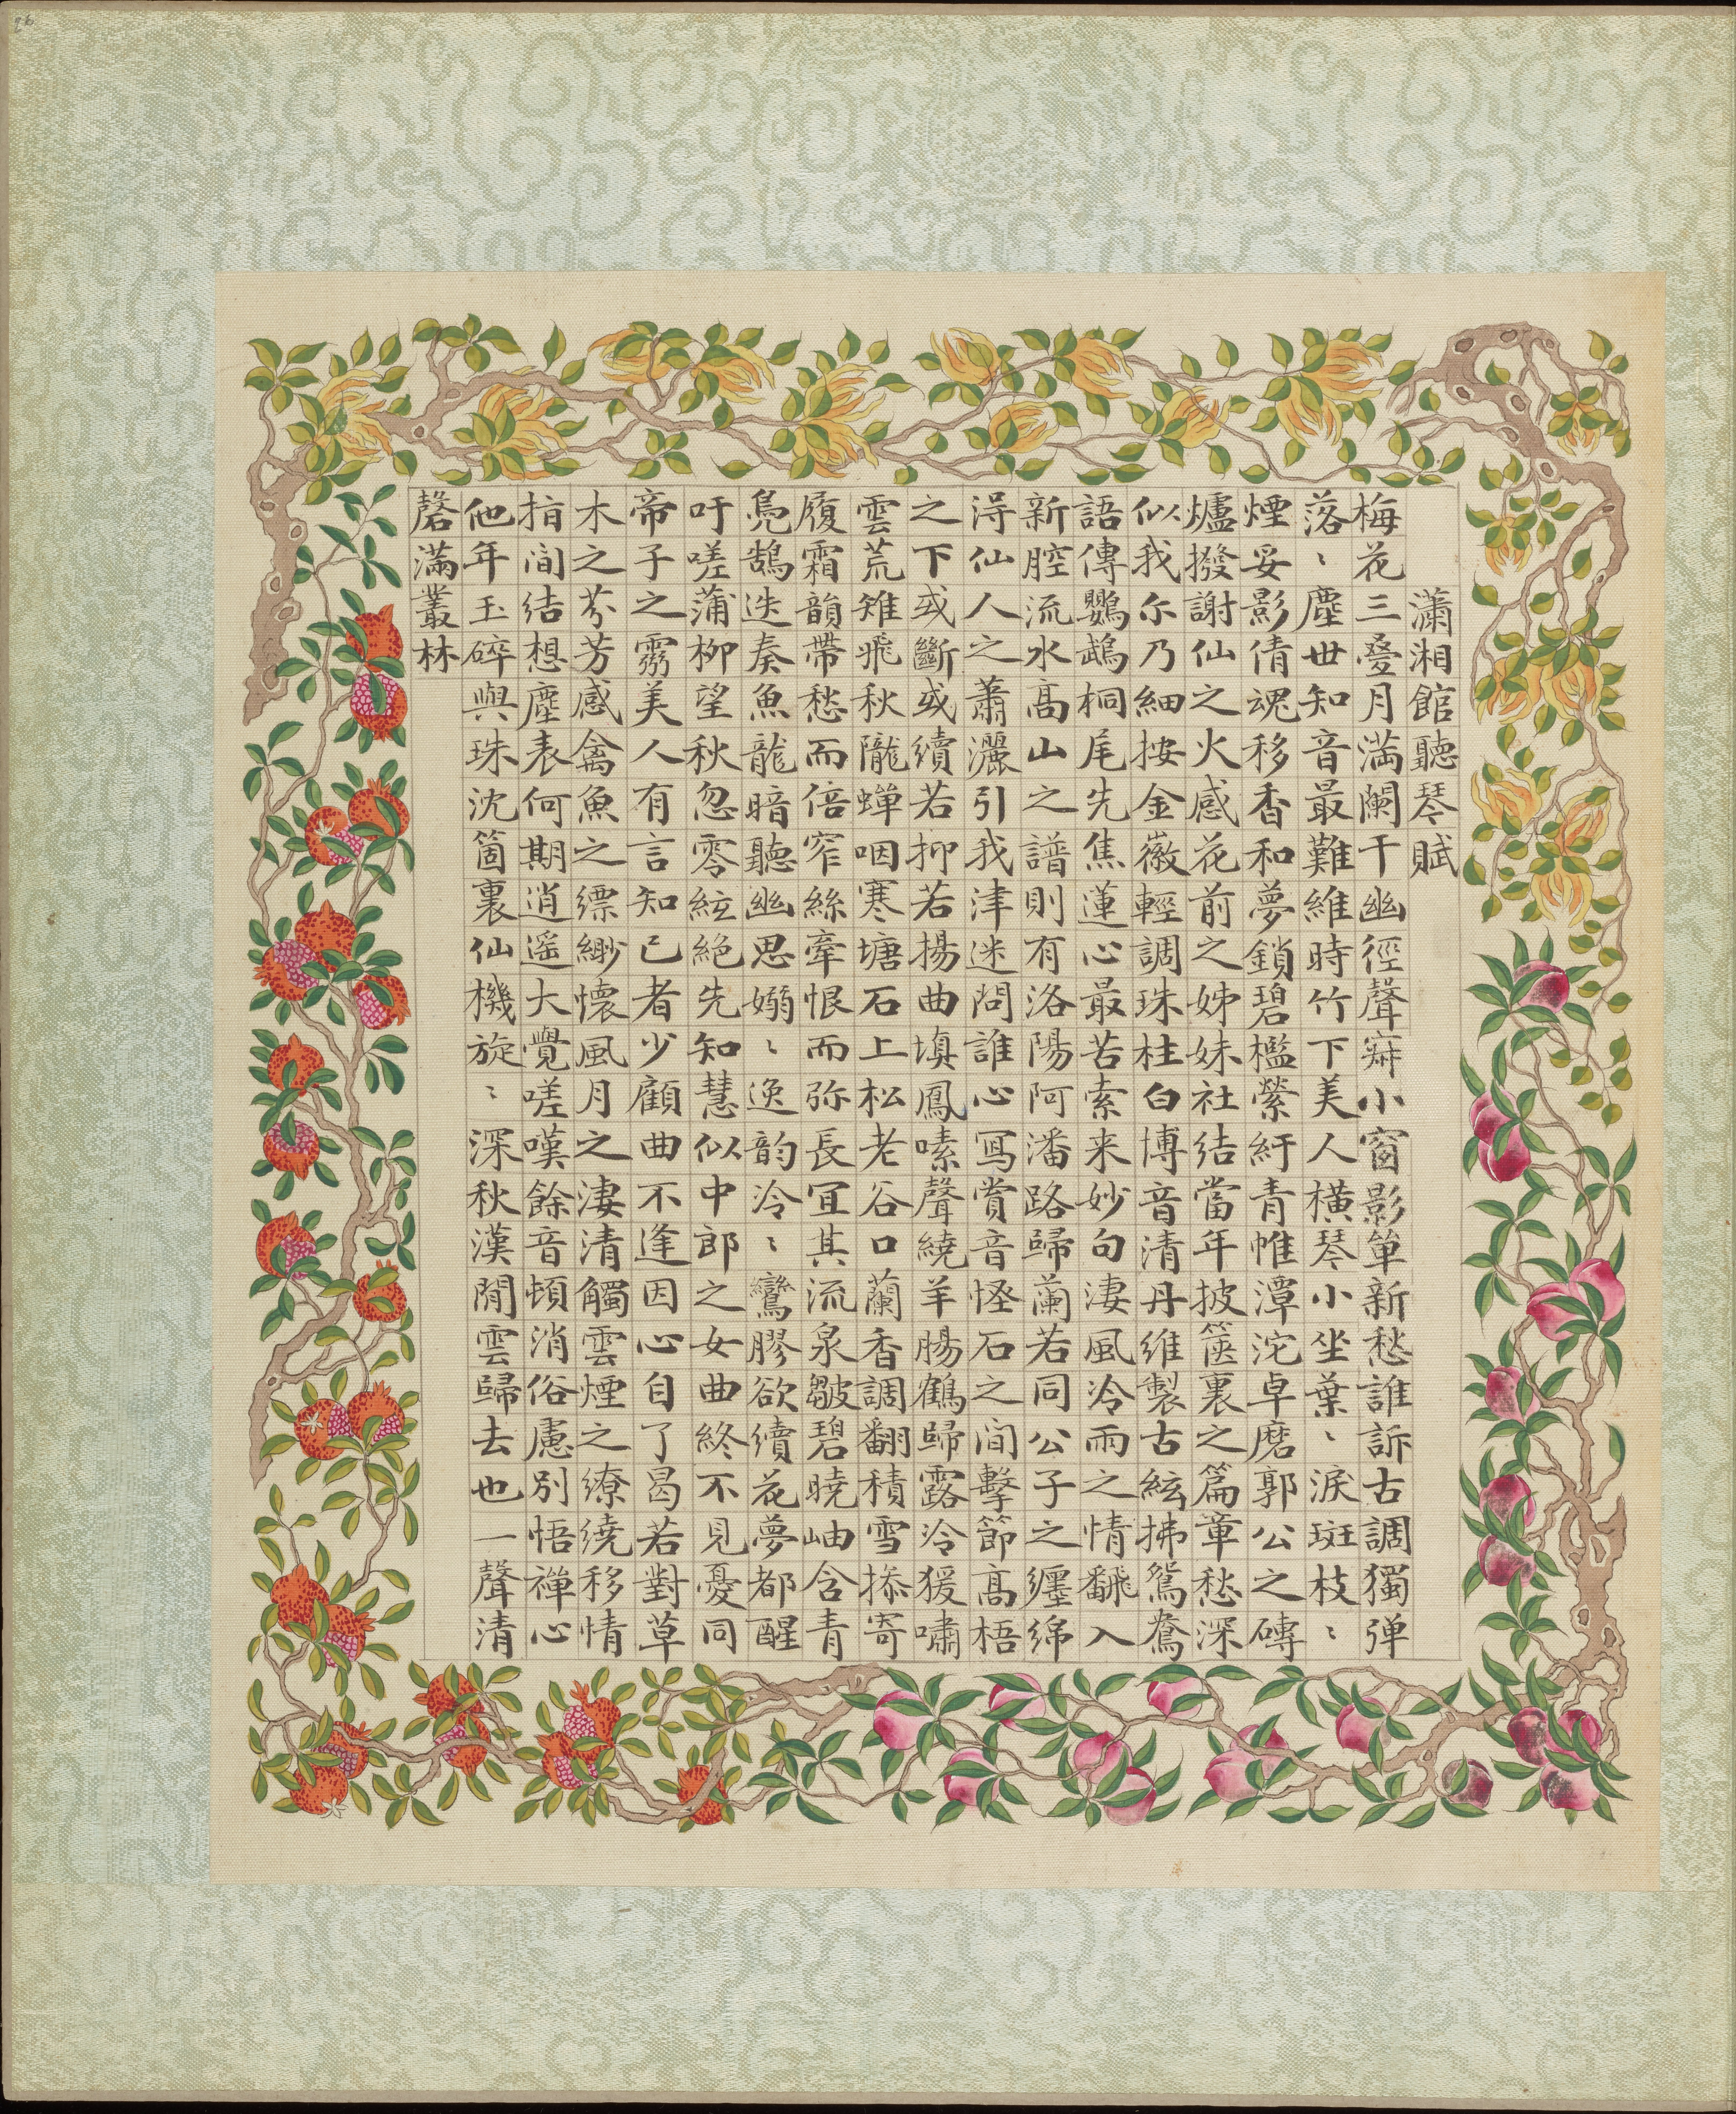 瀟湘館聽琴賦
梅花三疊月滿闌干幽徑聲寂小窗影單新愁誰訴古調獨弹
落〻塵世知音最難維時竹下美人横琴小坐葉〻淚斑枝〻
煙妥影倩魂移香和夢鎖碧檻縈紆青帷潭沱卓磨郭公之磚
爐撥謝仙之火感花前之姊妹社結當年披篋裏之篇章愁深
似我尓乃細按金徽輕調珠柱白博音清丹維製古絃拂鴛鴦
語傳鸚鵡桐尾先焦蓮心最苦索来妙句淒風冷雨之情翻入
新腔流水高山之譜則有洛陽阿潘路歸蘭若同公子之纒綿
淂仙人之蕭灑引我津迷問誰心冩賞音怪石之间擊節髙梧
之下或斷或續若抑若揚曲塡鳳嗉聲繞羊腸鶴歸露冷猨嘯
雲荒雉飛秋隴蟬咽寒塘石上松老谷口蘭香調翻積雪摻寄
履霜韻帶愁而倍窄絲牽恨而弥長冝其流泉皺碧曉岫含青
鳧鵠迭奏魚龍暗聽幽思嫋〻逸韵冷〻鸞膠欲續花夢都醒
吁嗟蒲柳望秋忽零絃絶先知慧似中郎之女曲終不見憂同
帝子之靈美人有言知己者少顧曲不逢因心自了曷若對草
木之芬芳感禽魚之縹緲懷風月之淒清觸雲煙之繚繞移情
指间結想塵表何期逍遥大覺嗟嘆餘音頓消俗慮別悟禅心
他年玉碎與珠沈箇裏仙機旋〻深秋漢閒雲歸去也一聲清
磬滿叢林